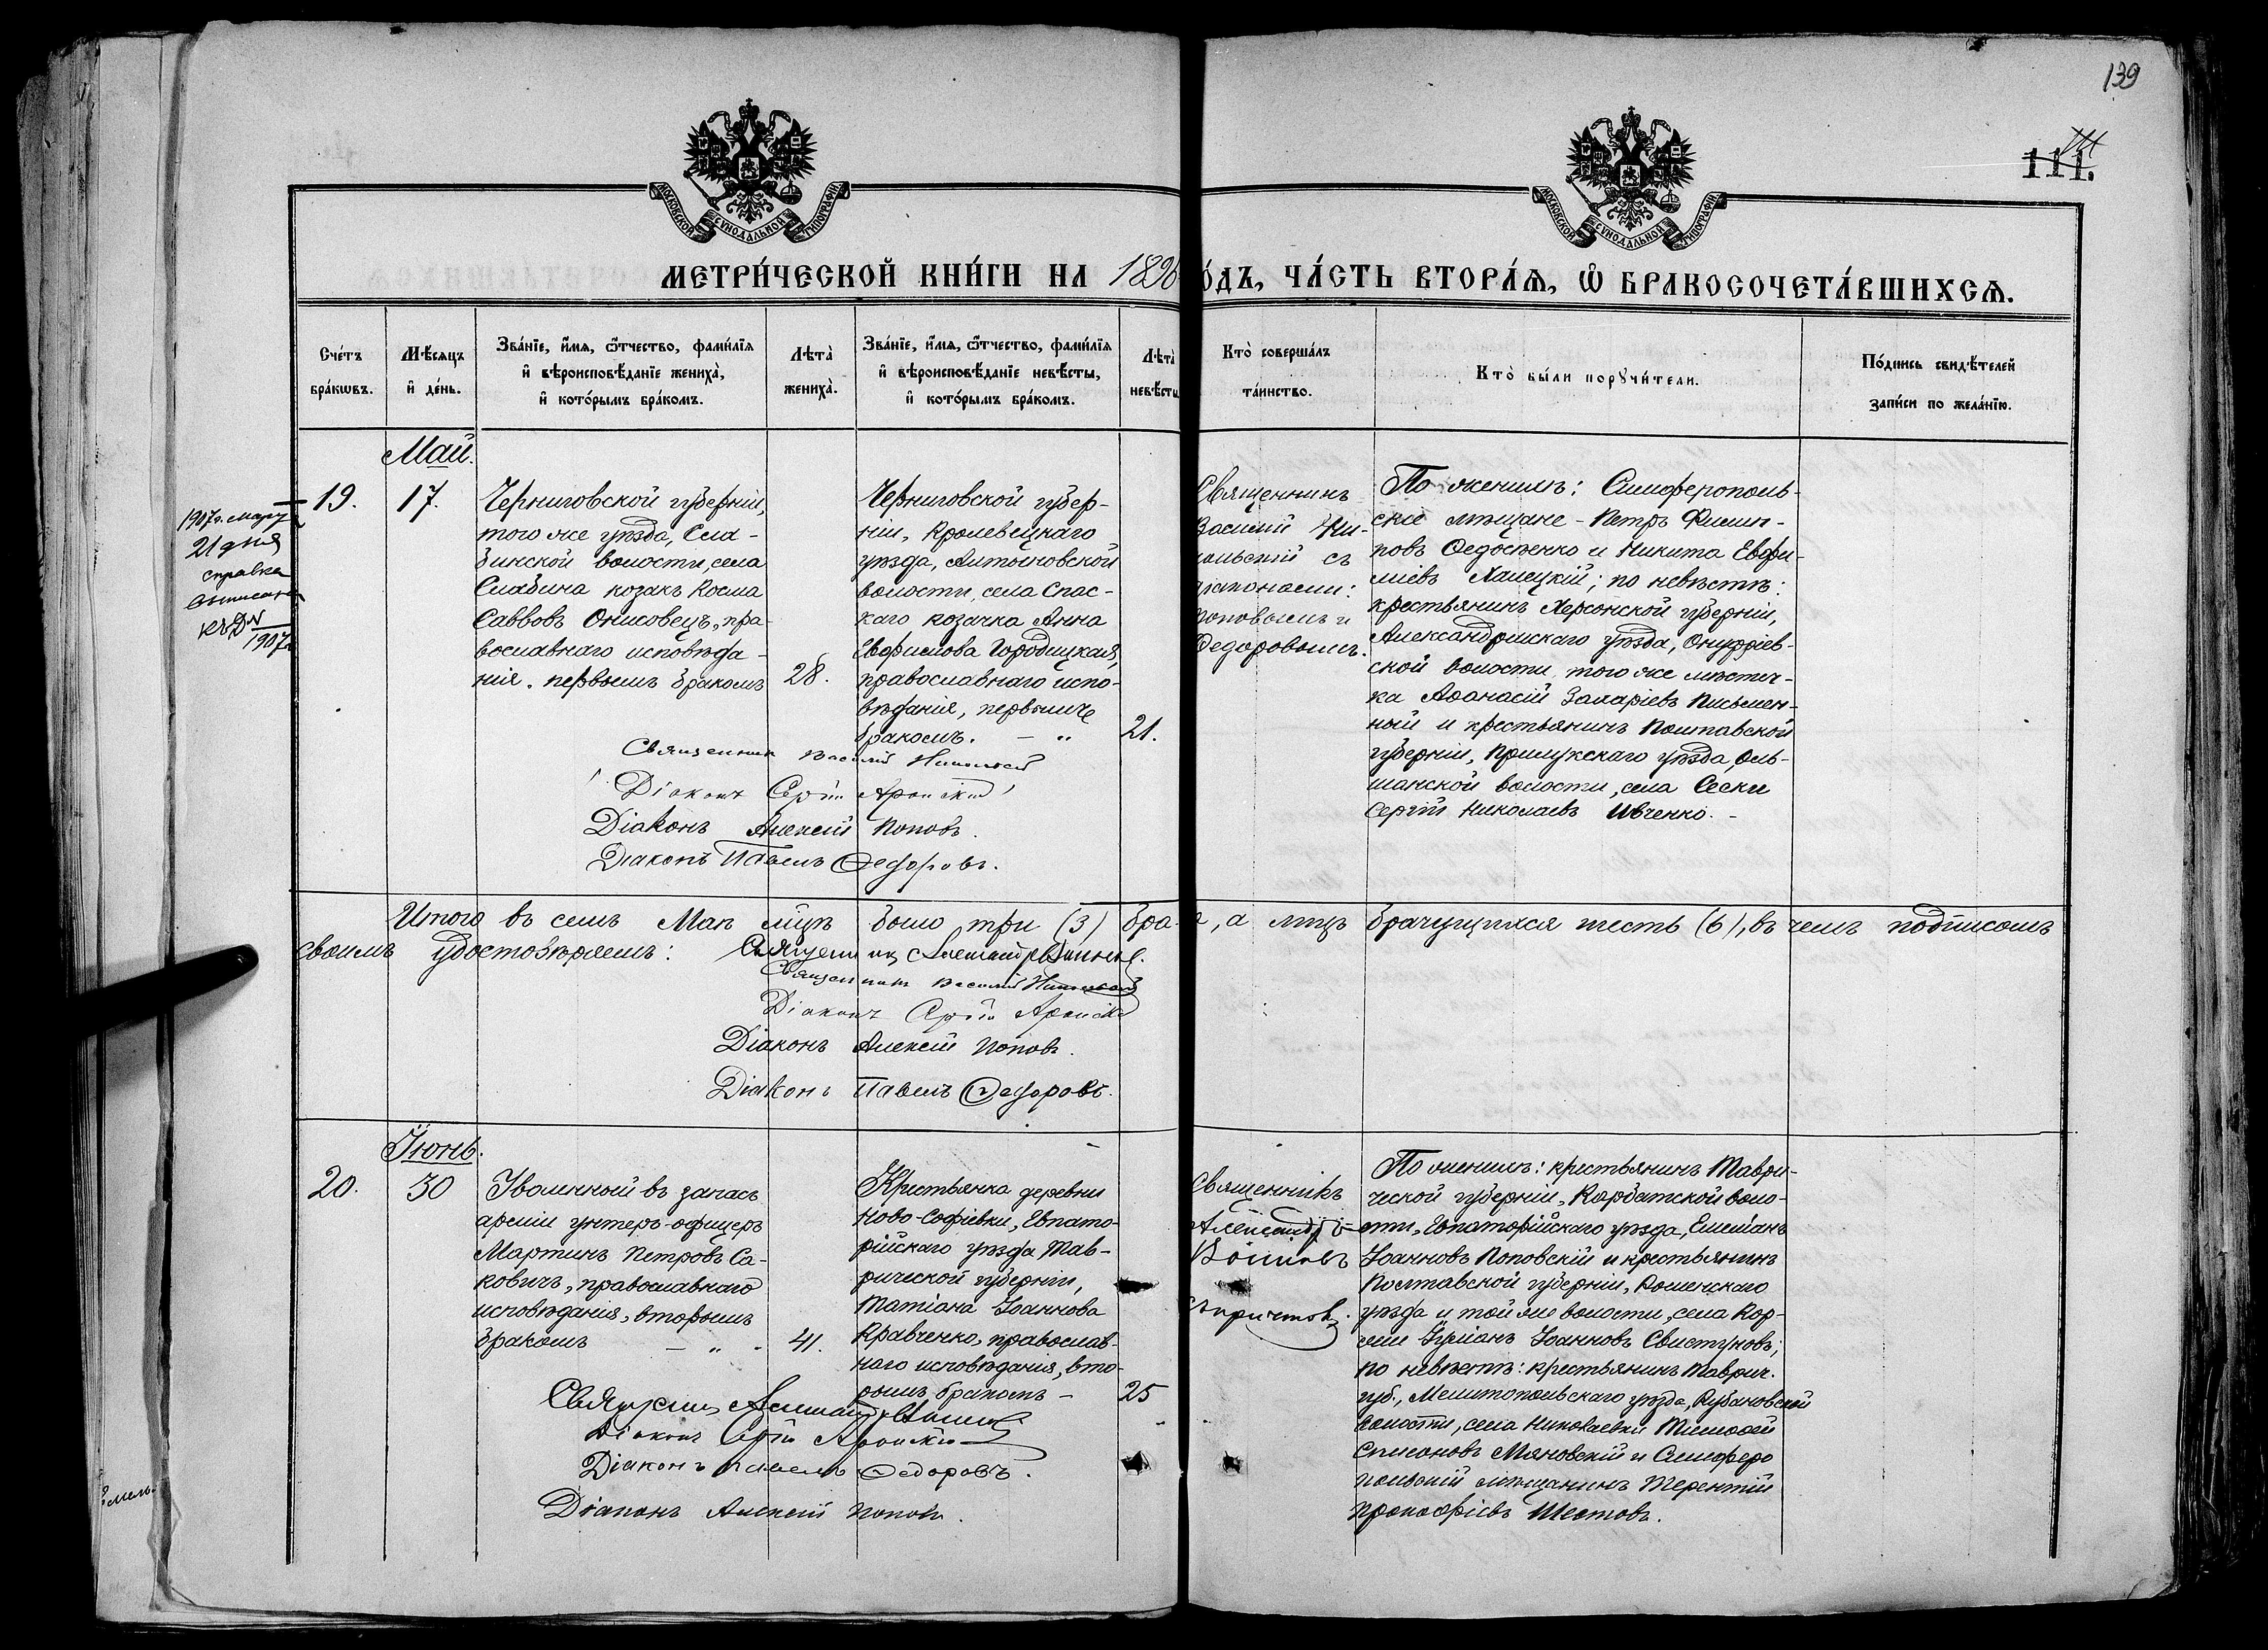 139
111.
МОСКОВСКОЙ СУНОДАЛЬНОЙ ТИПОГРАФІИ
МОСКОВСКОЙ СУНОДАЛЬНОЙ ТИПОГРАФІИ
МЕТРИ́ЧЕСКОЙ КНИ́ГИ НА 1896 ГО́ДЪ, ЧА́СТЬ ВТОРА́Ѧ, Ѡ҆ БРАКОСОЧЕТА́ВШИХСѦ.
Сче́тъ бра́кѡвъ.
Мѣ́сяцъ и҆ де́нь.
Зва́нїе, и҆́мя, ѻ҆́тчество, фами́лїя и҆ вѣроисповѣ́данїе жениха̀, и҆ кото́рымъ бра́комъ.
Лѣта̀ жениха̀.
Зва́нїе, и҆́мя, ѻ҆́тчество, фами́лїя и҆ вѣроисповѣ́данїе невѣ́сты, и҆ кото́рымъ бра́комъ.
Лѣта̀ невѣ́сты
Кто̀ соверша́лъ та́инство.
Кто̀ бы́ли порꙋчи́тели.
По́дпись свидѣ́телей за́писи по жела́нїю.
Май.
1907 г. марта
21 дня
справка
выписана
къ д №
1907 г.
19.
17.
Черниговской губерніи,
того же уѣзда, Сла-
бинской волости, села
Слабина козакъ Косма
Саввовъ Онисовецъ, пра-
вославнаго исповѣда-
нія. первымъ бракомъ
28.
Черниговской губер-
ніи, Кролевецкаго
уѣзда, Алтыновской
волости, села Спас-
каго козачка Анна
Евфимова Городицкая,
православнаго испо-
вѣданія, первымъ
бракомъ. — „
21.
Священникъ
Василій Ни-
кольскій съ
діаконами:
Поповымъ и
Федоровымъ.
По женихѣ: Симферополь-
скіе мѣщане - Петръ Филип-
повъ Ѳедосѣенко и Никита Евфи-
міевъ Халецкій; по невѣстѣ:
крестьянинъ Херсонской губерніи,
Александрійскаго уѣзда, Онуфріев-
ской волости, того же мѣстеч-
ка Аѳанасій Захаріевъ Письмен-
ный и крестьянинъ Полтавской
губерніи, Прилукскаго уѣзда, Оль-
шанской волости, села
Сергій Николаевъ Ивченко. -
Священникъ Василій Никольскій
Діаконъ Сергій
Діаконъ Алексій Поповъ.
Діаконъ Павелъ Федоровъ.
Итого въ семъ Маѣ мцѣ было три (3) брака, а лицъ брачущихся шесть (6), въ чемъ подписомъ
своимъ удостовѣряемъ: Священникъ Александръ
Священникъ Василій Никольскій
Діаконъ Сергій
Діаконъ Алексій Поповъ.
Діаконъ Павелъ Федоровъ.
Іюнь.
20.
30
Уволенный въ запасъ
арміи унтеръ-офицеръ
Мартинъ Петровъ Са-
ковичъ, православнаго
исповѣданія, вторымъ
бракомъ — „ -
41.
Крестьянка деревни
Ново-Софіевки, Евпато-
рійскаго уѣзда Тав-
рической губерніи,
Татіана Іоаннова
Кравченко, православ-
наго исповѣданія, вто-
рымъ бракомъ -
25
Священникъ
Александръ
съ причтомъ.
По женихѣ: крестьянинъ Таври-
ческой губерніи, Курбатской воло-
сти, Евпаторійскаго уѣзда, Емеліанъ
Іоанновъ Поповскій и крестьянинъ
Полтавской губерніи, Роменскаго
уѣзда и той же волости, села Кор-
жи Іуліанъ Іоанновъ Свистуновъ;
по невѣстѣ: крестьянинъ Таврич.
губ., Мелитопольскаго уѣзда, Рубановской
волости, села Николаевки Тимоѳей
Симоновъ Маковскій и Симферо
польскій мѣщанинъ Терентій
Прокофіевъ Шестовъ.
Священникъ Александръ
Діаконъ Сергій
Діаконъ Павелъ Федоровъ.
Діаконъ Алексій Поповъ.